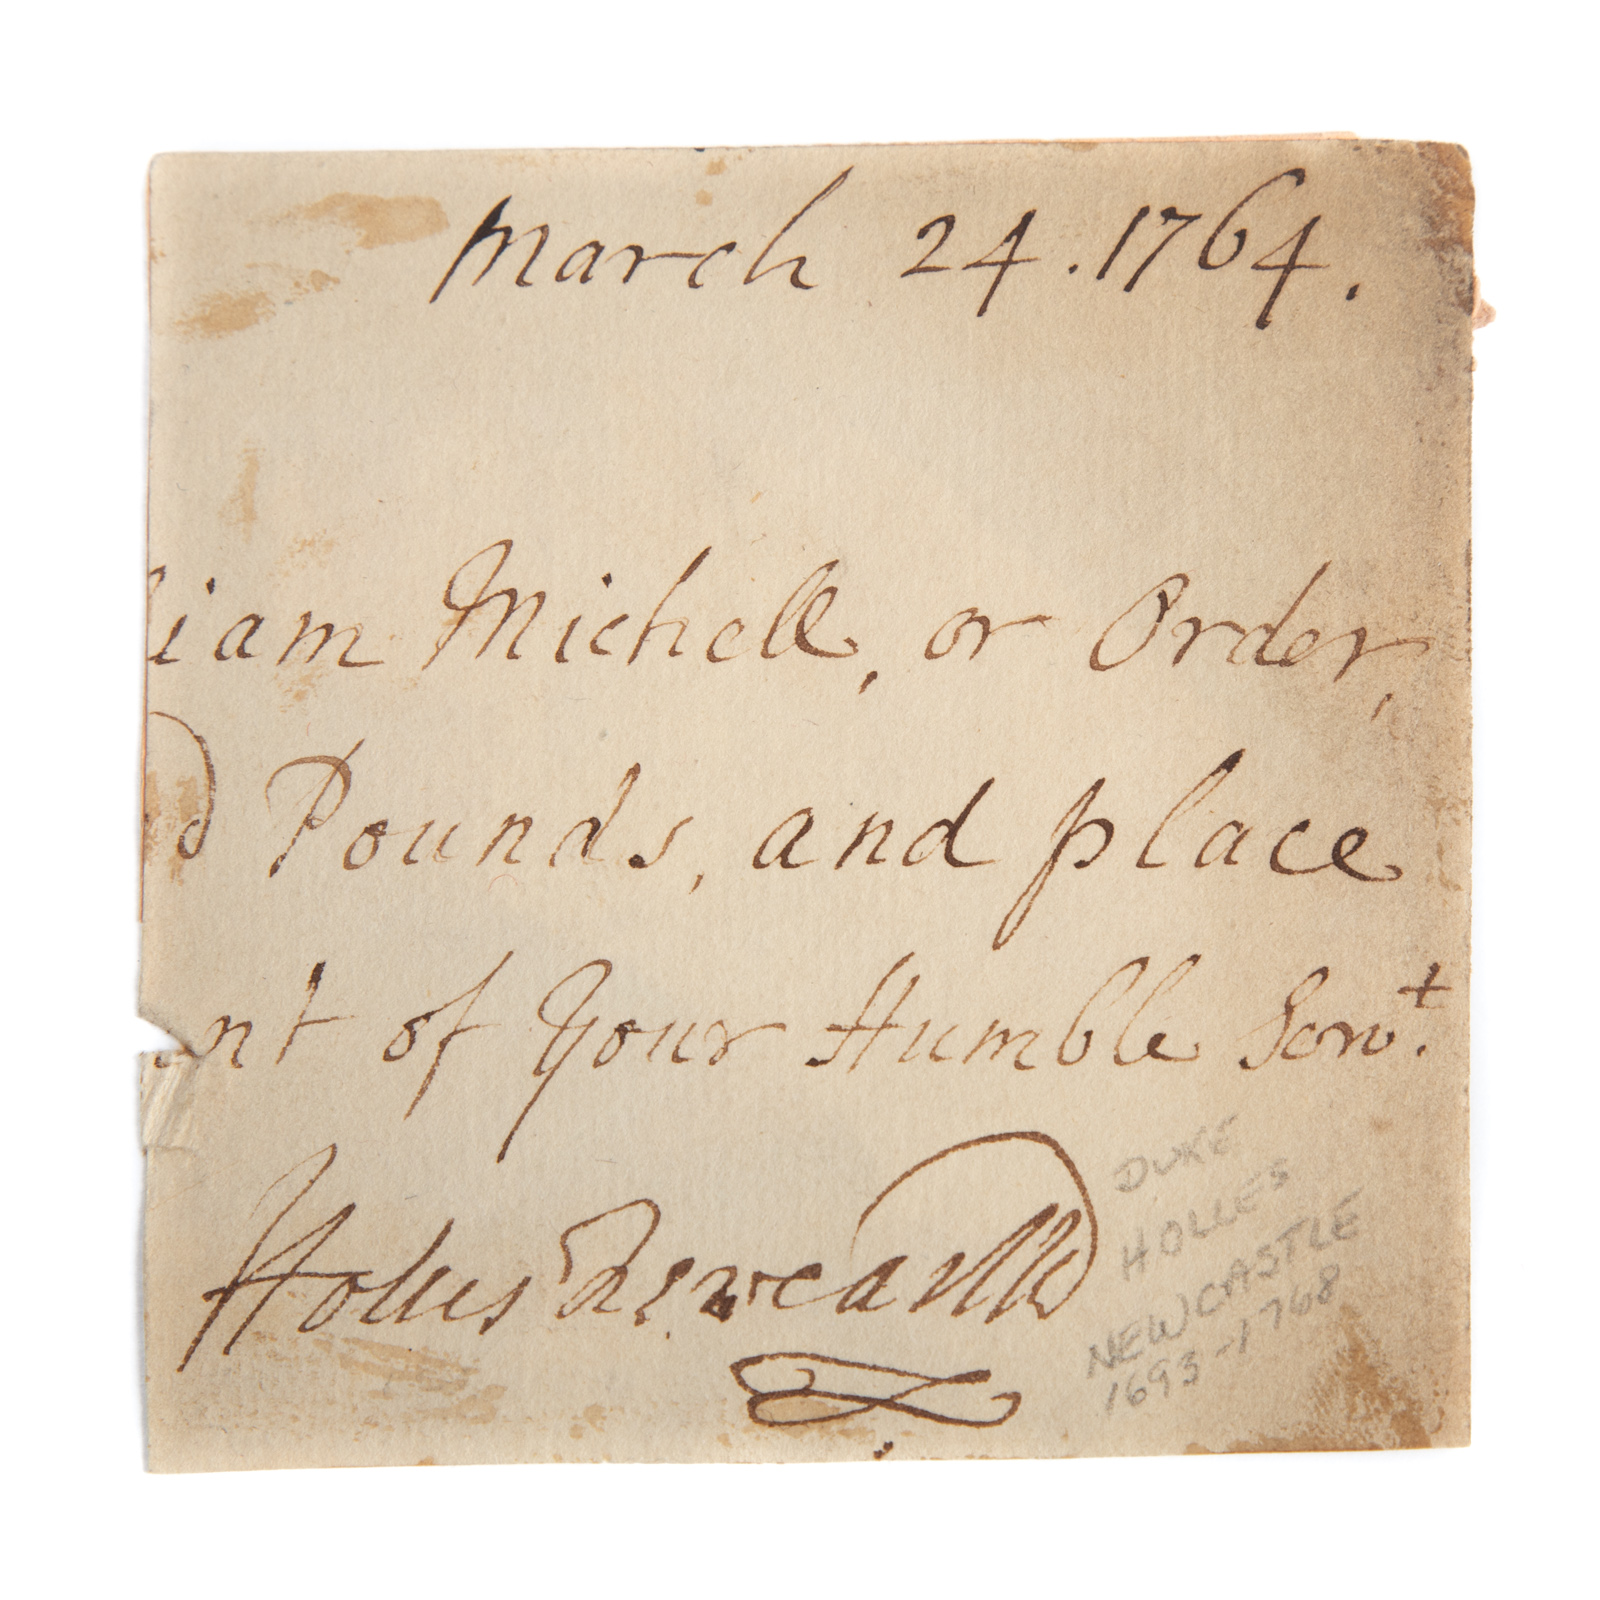 March 24. 1764.
liam Michell, or Order,
d Pounds, and place
nt of Your Humble Servt.
Holles Newcastle
DUKE
HOLLES
NEWCASTLE
1693-1768